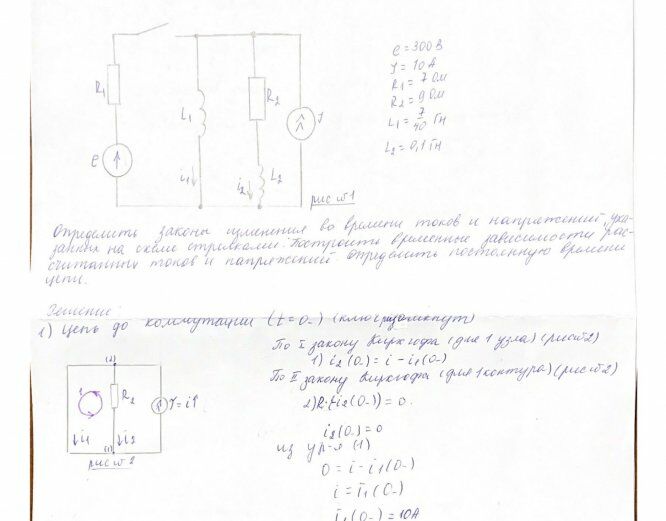 e = 300 В
J = 10 А
R1 = 7 Ом
R2 = 9 Ом
L1 = 7/40 Гн
L2 = 0,1 Гн
R1
L1
R2
J
e
i1
i2
L2
рис №1
Определить законы изменения во времени токов и напряжений, ука-
занных на схеме стрелками. Построить временные зависимости рас-
считанных токов и напряжений. Определить постоянную времени
цепи.
Решение
1) Цепь до коммутации (t=0-) (ключ разомкнут)
(2)
1
R2
J=i
i1
i2
(1)
рис №2
По I закону Кирхгофа (для 1 узла) (рис №2)
1) i2(0-) = i - i1(0-)
По II закону Кирхгофа (для 1 контура) (рис №2)
2) i2(0-) = 0
i2(0-) = 0
из ур-я (1)
0 = i - i1(0-)
i = i1(0-)
i1(0-) = 10А